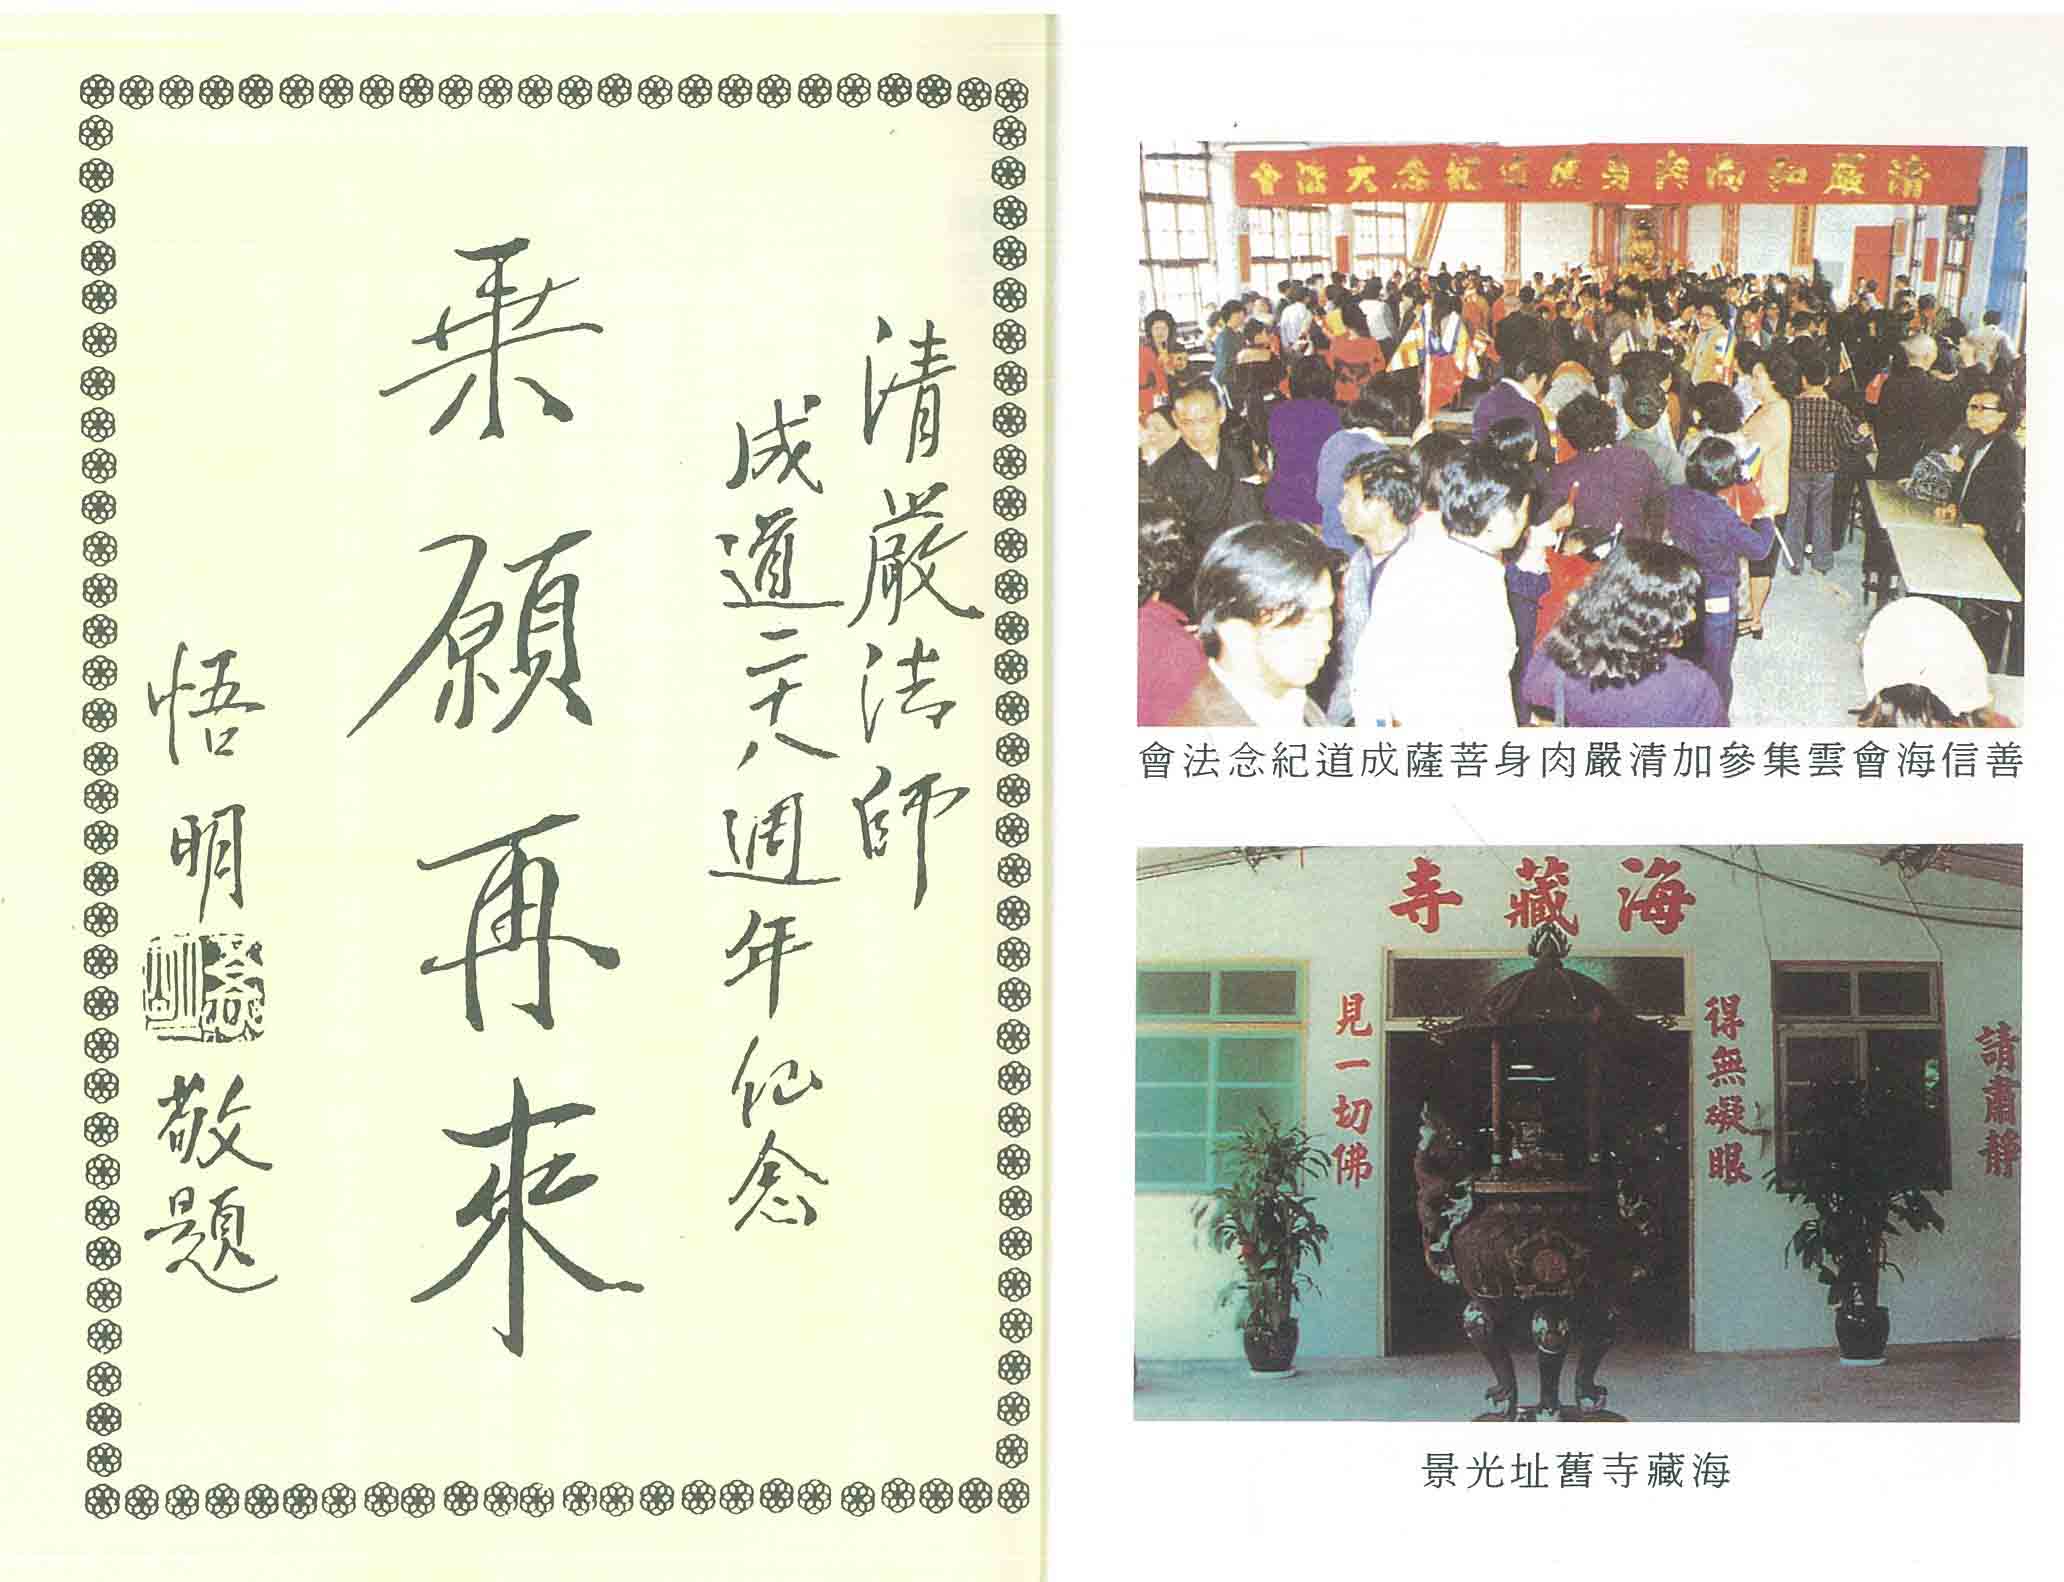 清嚴法師
成道二十八週年紀念
乘願再來
悟明
敬題
清嚴和尚肉身成道紀念大法會
善信海會雲集參加清嚴肉身菩薩成道紀念法會
海藏寺
請肅靜
得無礙眼
見一切佛
海藏寺舊址光景